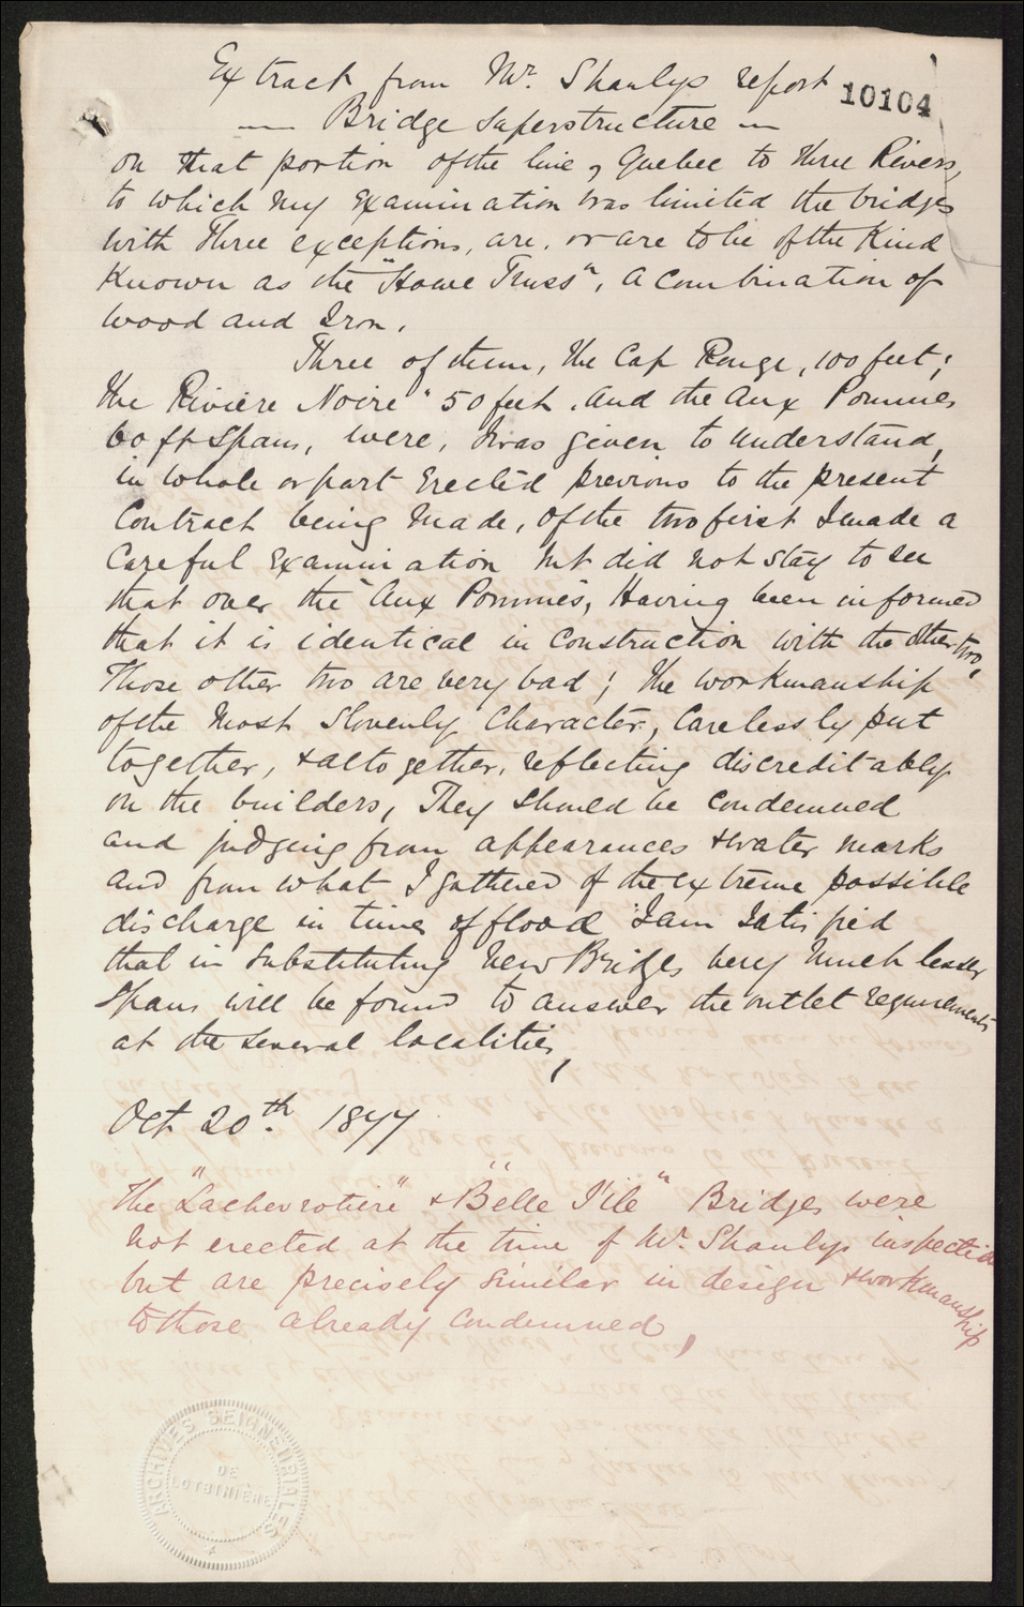 Extract from Mr. Shanlys report
10104
— Bridge Superstructure —
on that portion of the line, Quebec to Three Rivers,
to which my examination was limited the bridges
with Three exceptions, are, or are to be of the Kind
Known as the "Howe Truss", a combination of
wood and Iron.
Three of them, the Cap Rouge, 100 feet;
the Riviere Noire" 50 feet, and the Aux Pommes
60 ft spans, were, I was given to understand,
in whole or part Erected previous to the present
Contract being made, of the two first I made a
Careful Examination but did not stay to see
that over the "Aux Pommes, Having been informed
that it is identical in construction with the other two,
Those other two are very bad; the workmanship
of the most Slovenly Character, Carelessly put
together, & altogether, reflecting discreditably
on the builders, They should be condemned
and judging from appearances & water marks
and from what I gathered of the extreme possible
discharge in times of flood I am Satisfied
that in substituting New Bridges very much lesser
Spans will be found to answer the outlet requirements
at the several localities,
Oct 20th. 1877
The "Lachevrotiere" & "Belle I'ile" Bridges were
not erected at the time of Mr. Shanlys inspection
but are precisely similar in design & workmanship
to those already Condemned,
ARCHIVES SEIGNEURIALES
DE
LOTBINIÈRE